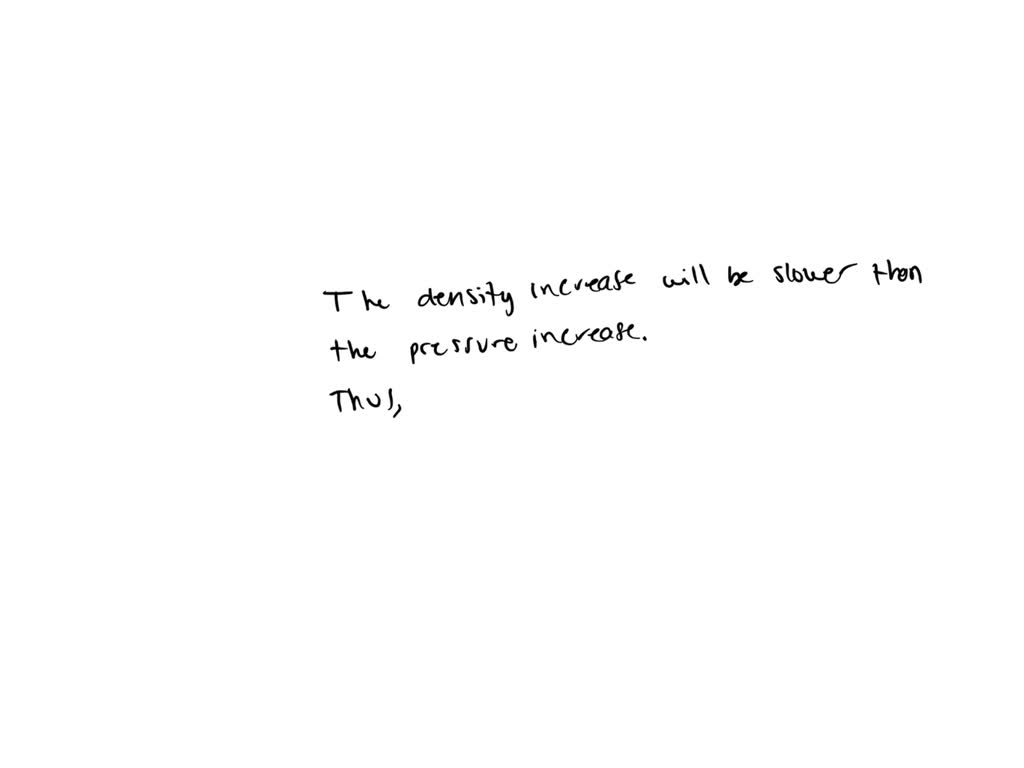 The density increase will be slower than
the pressure increase.
Thus,